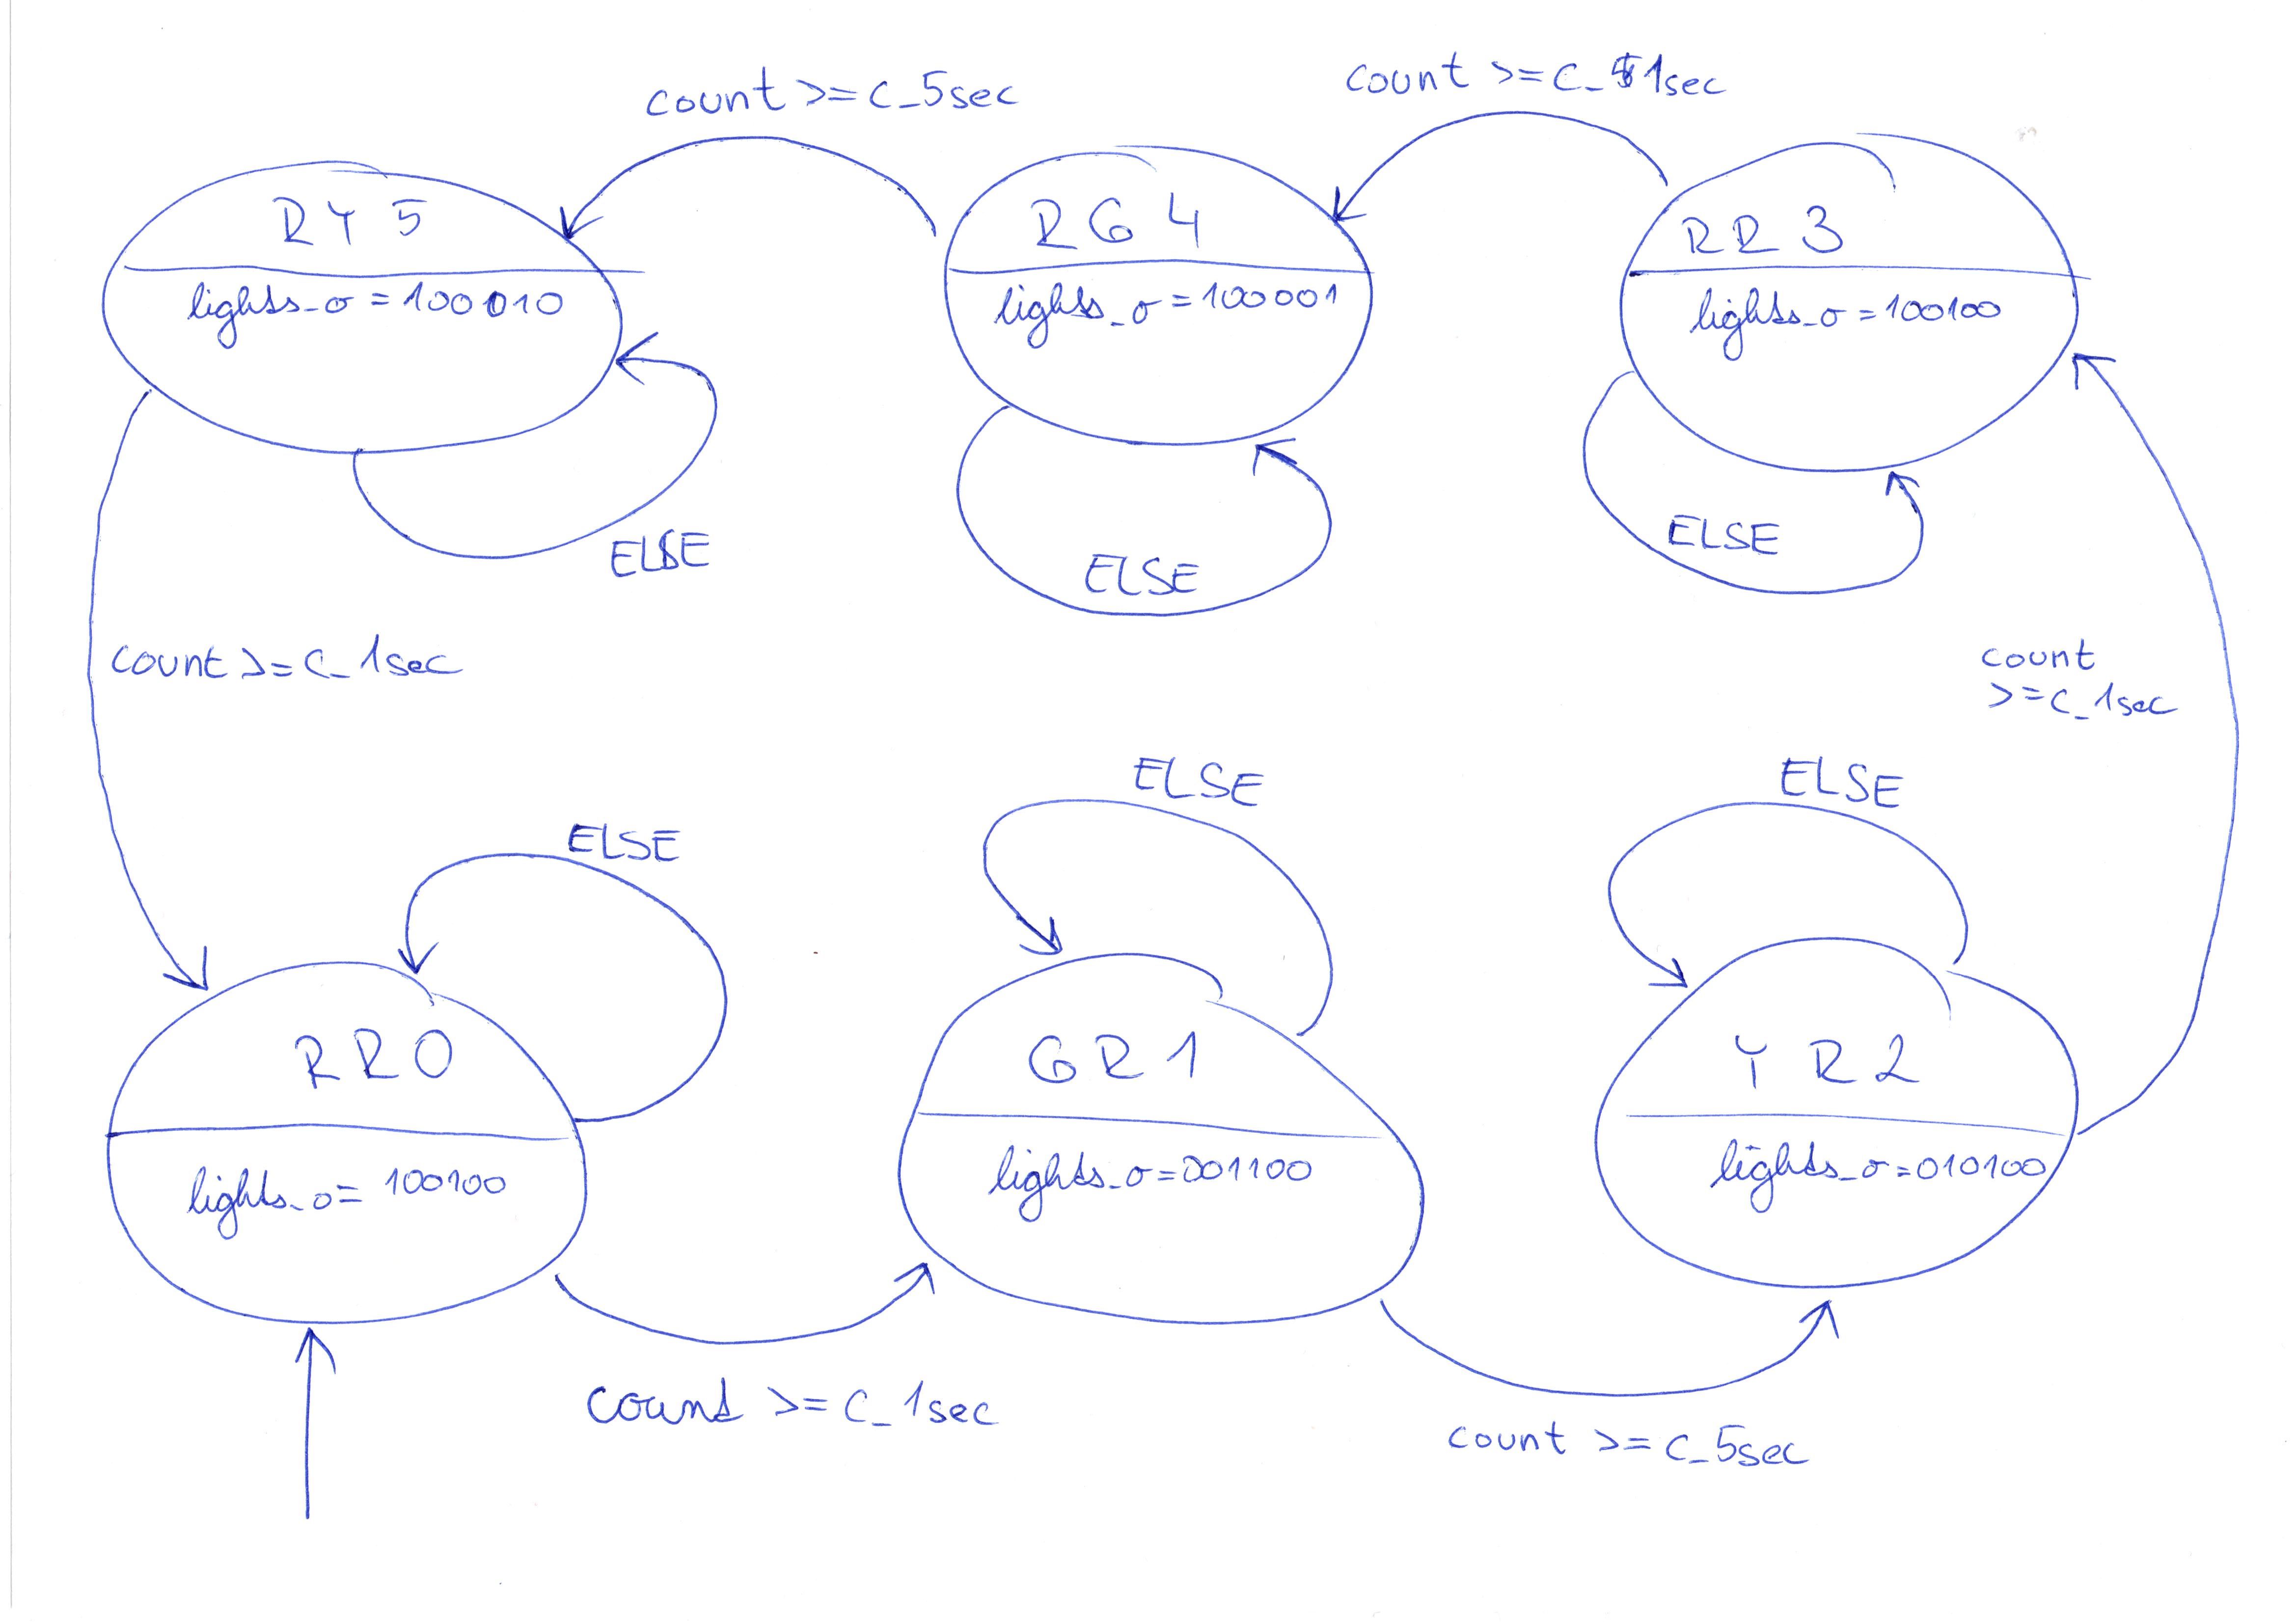 count >= c_5sec
count >= c_1sec
RY5
lights_o = 100010
RG4
lights_o = 100001
RR3
lights_o = 100100
ELSE
ELSE
ELSE
count >= c_1sec
count
>= c_1sec
ELSE
ELSE
ELSE
RR0
lights_o = 100100
GR1
lights_o = 001100
YR2
lights_o = 010100
count >= c_1sec
count >= c_5sec